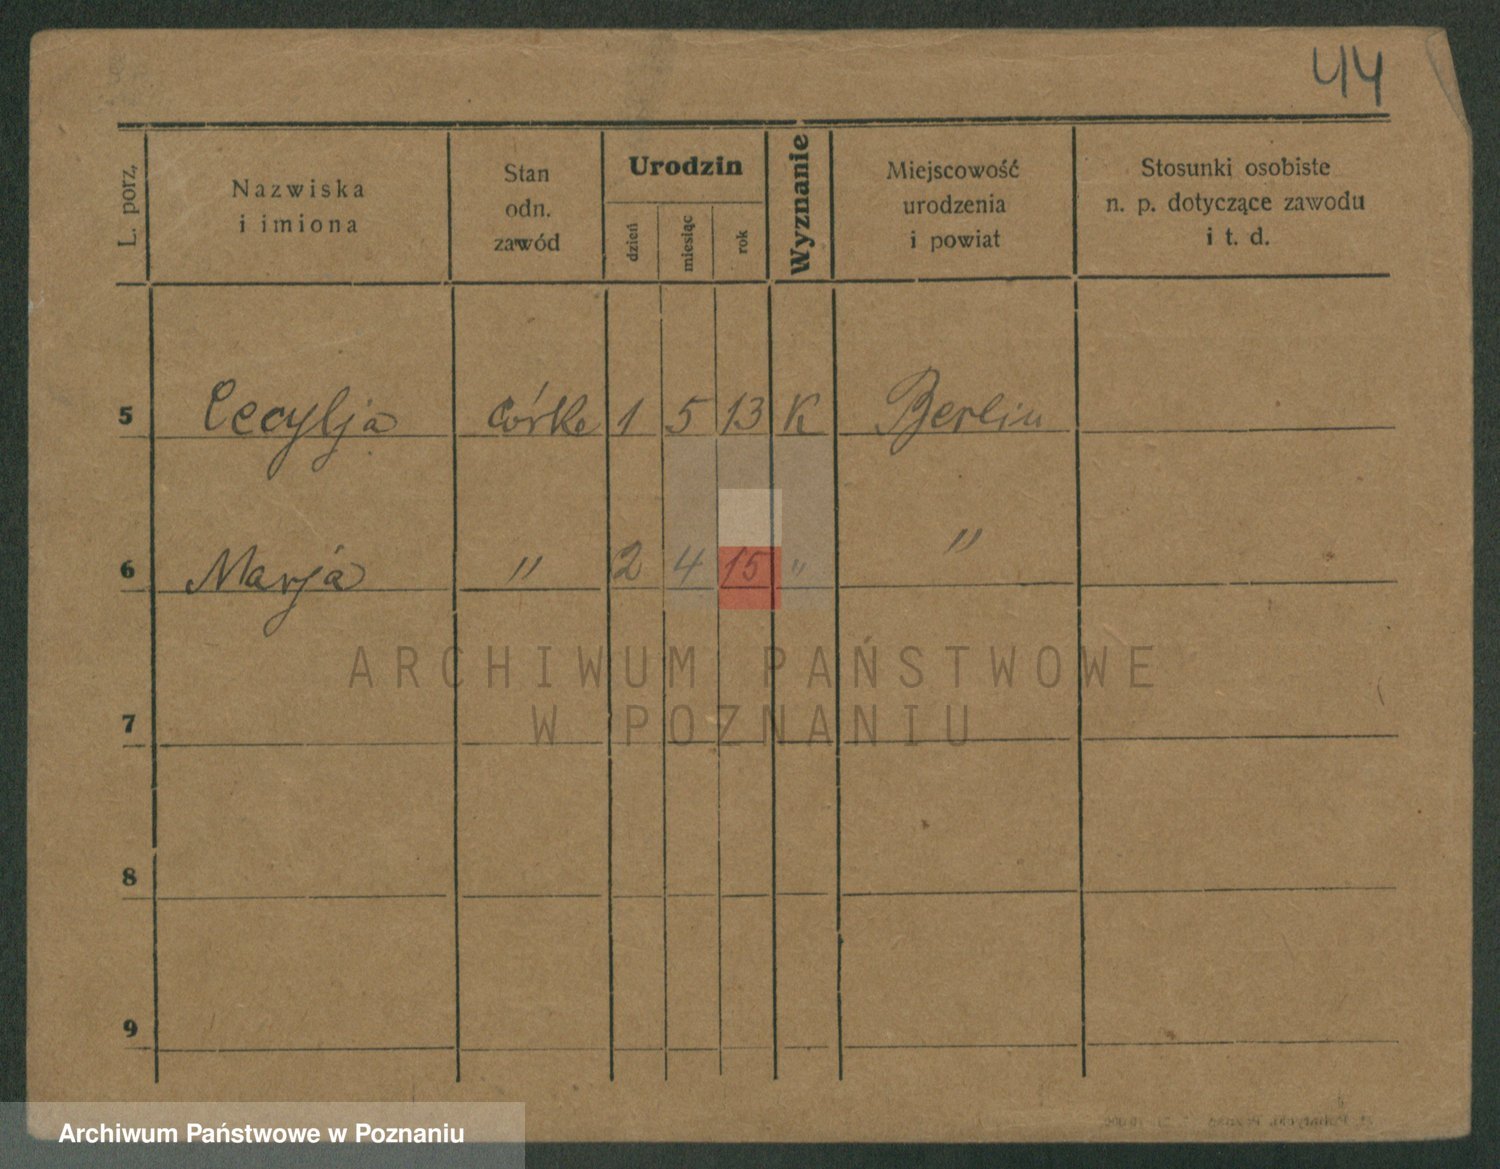 44
L. porz.
Nazwiska
i imiona
Stan
odn.
zawód
Urodzin
dzień
miesiąc
rok
Wyznanie
Miejscowość
urodzenia
i powiat
Stosunki osobiste
n. p. dotyczące zawodu
i t. d.
5 Cecylja córka 1 5 13 K Berlin
6 Marja " 2 4 15 " "
ARCHIWUM PAŃSTWOWE
W POZNANIU
7
8
9
Archiwum Państwowe w Poznaniu